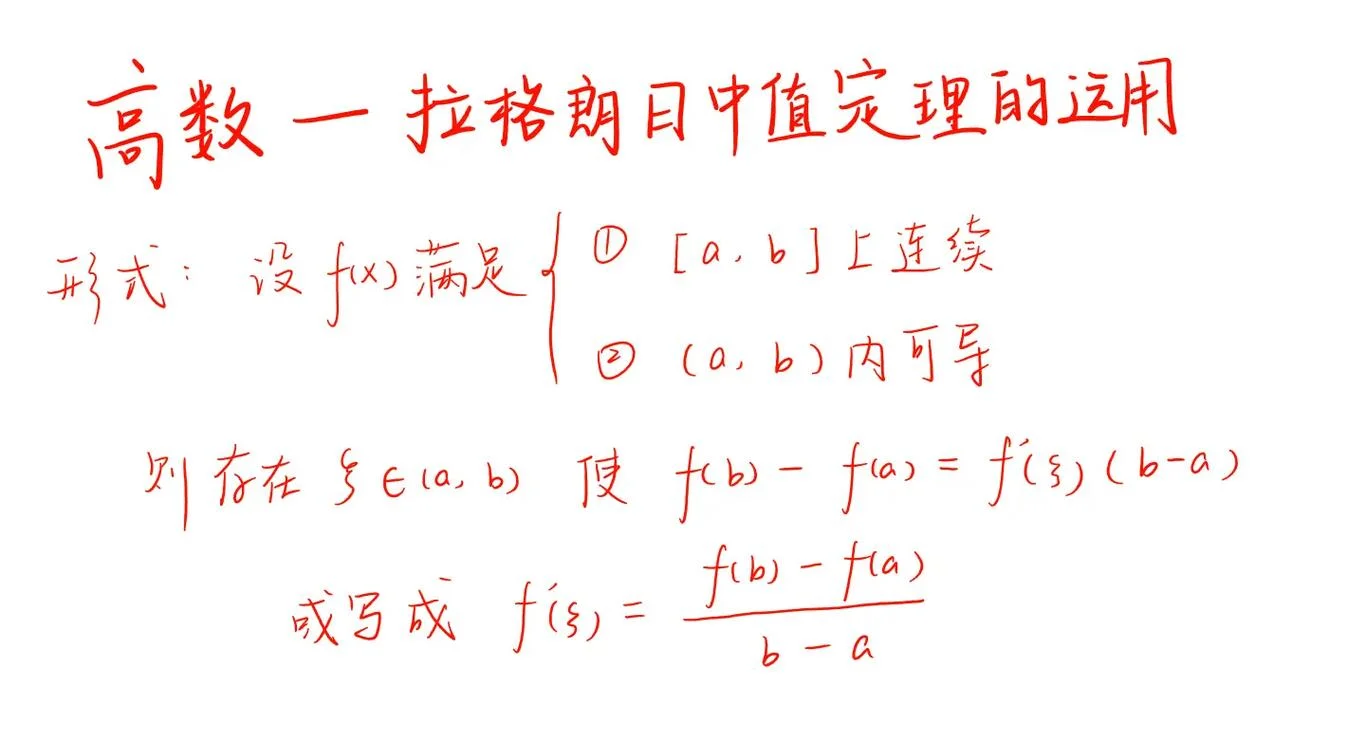 高数一拉格朗日中值定理的运用
形式：设 f(x) 满足 { ① [a, b] 上连续
② (a, b) 内可导
则存在 ξ∈(a, b) 使 f(b) - f(a) = f'(ξ)(b-a)
或写成 f'(ξ) = \frac{f(b) - f(a)}{b - a}